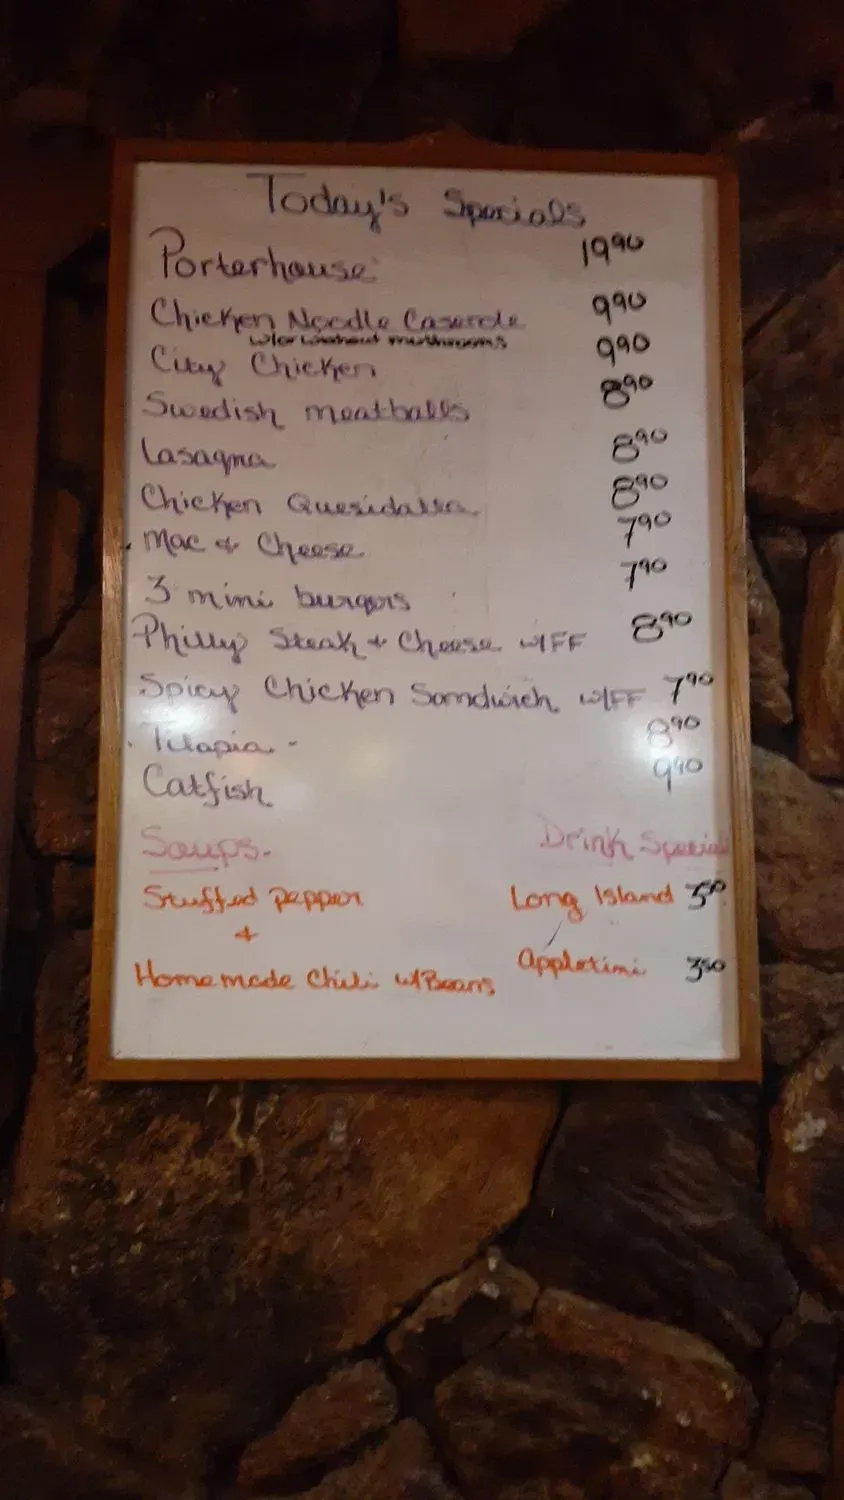 Today's Specials
Porterhouse 19 90
Chicken Noodle Casserole 9 90
w/or without mushrooms
City Chicken 9 90
Swedish meatballs 8 90
Lasagna 8 90
Chicken Quesidalla 8 90
Mac & Cheese 7 90
3 mini burgers 7 90
Philly Steak & Cheese w/FF 8 90
Spicy Chicken Sandwich w/FF 7 90
Tilapia - 8 90
Catfish 9 90
Soups-
Stuffed pepper
&
Homemade Chili w/Beans
Drink Special
Long Island
Appletini 3 50